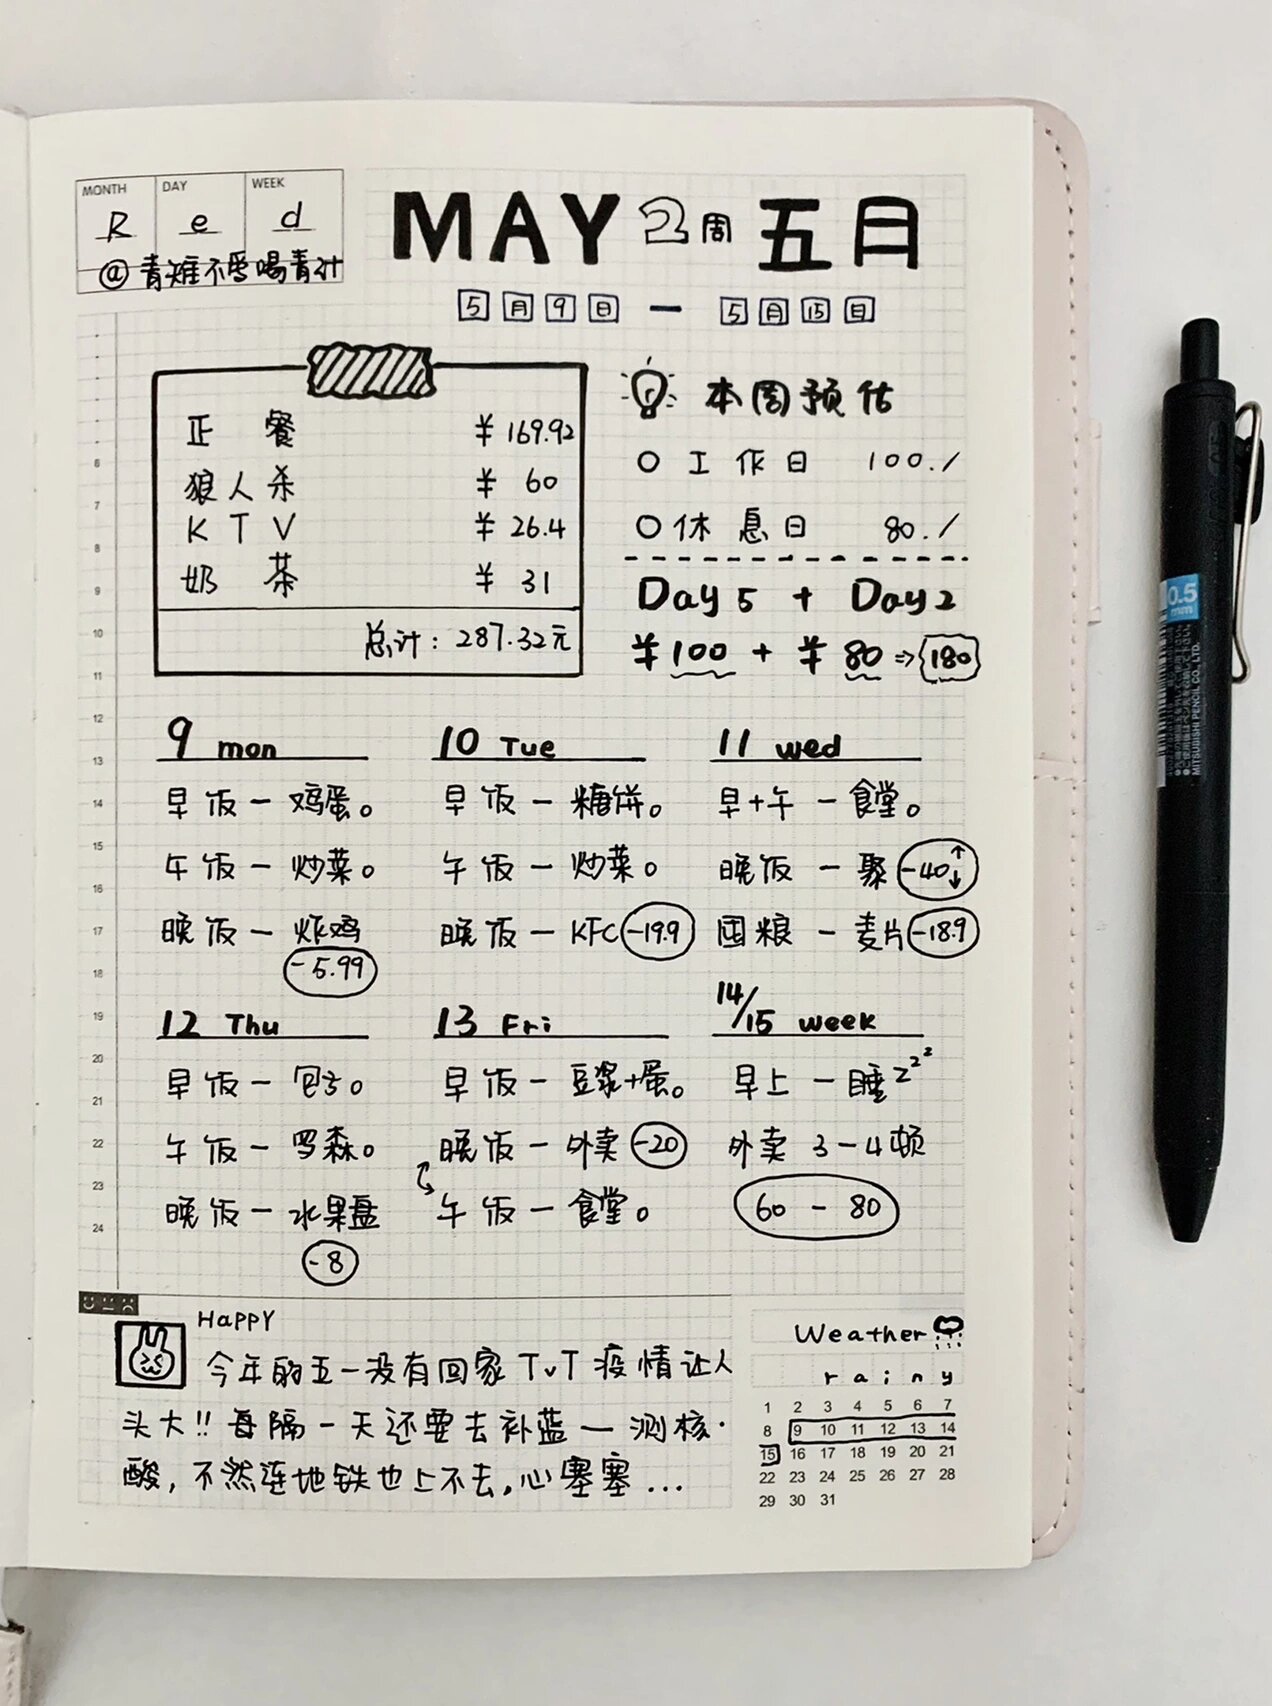 MONTH DAY WEEK
R e d
@青难不爱喝青汁
MAY 2周 五月
5月9日 — 5月15日
正餐 ¥169.92
狼人杀 ¥60
KTV ¥26.4
奶茶 ¥31
总计：287.32元
本周预估
○工作日 100./
○休息日 80./
Day5 + Day2
¥100 + ¥80 => 180
9 mon
早饭—鸡蛋。
午饭—炒菜。
晚饭—炸鸡
-5.99
10 Tue
早饭—糖饼。
午饭—炒菜。
晚饭—KFC -19.9
11 wed
早+午—食堂。
晚饭—聚 -40↑↓
囤粮—麦片 -18.9
12 Thu
早饭—包子。
午饭—罗森。
晚饭—水果盘
-8
13 Fri
早饭—豆浆+蛋。
晚饭—外卖 -20
午饭—食堂。
14/15 week
早上—睡zzz
外卖 3—4顿
60 — 80
Happy
今年的五一没有回家TvT疫情让人
头大!!每隔一天还要去补蓝—测核·
酸，不然连地铁也上不去，心塞塞...
Weather
rainy
1 2 3 4 5 6 7
8 9 10 11 12 13 14
15 16 17 18 19 20 21
22 23 24 25 26 27 28
29 30 31
6
7
8
9
10
11
12
13
14
15
16
17
18
19
20
21
22
23
24
0.5
mm
MITSUBISHI PENCIL CO., LTD.